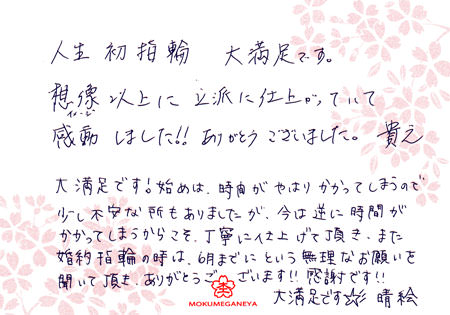 人生初指輪 大満足です。
想像以上に立派に仕上がっていて
イメージ
感動しました!! ありがとうございました。 貴之
大満足です!始めは、時間がやはりかかってしまうので
少し不安な所もありましたが、今は逆に時間が
かかってしまうからこそ、丁寧に仕上げて頂き、また
婚約指輪の時は、6月までにという無理なお願いを
聞いて頂き、ありがとうございます!! 感謝です!!
大満足です☆彡 晴絵
MOKUMEGANEYA